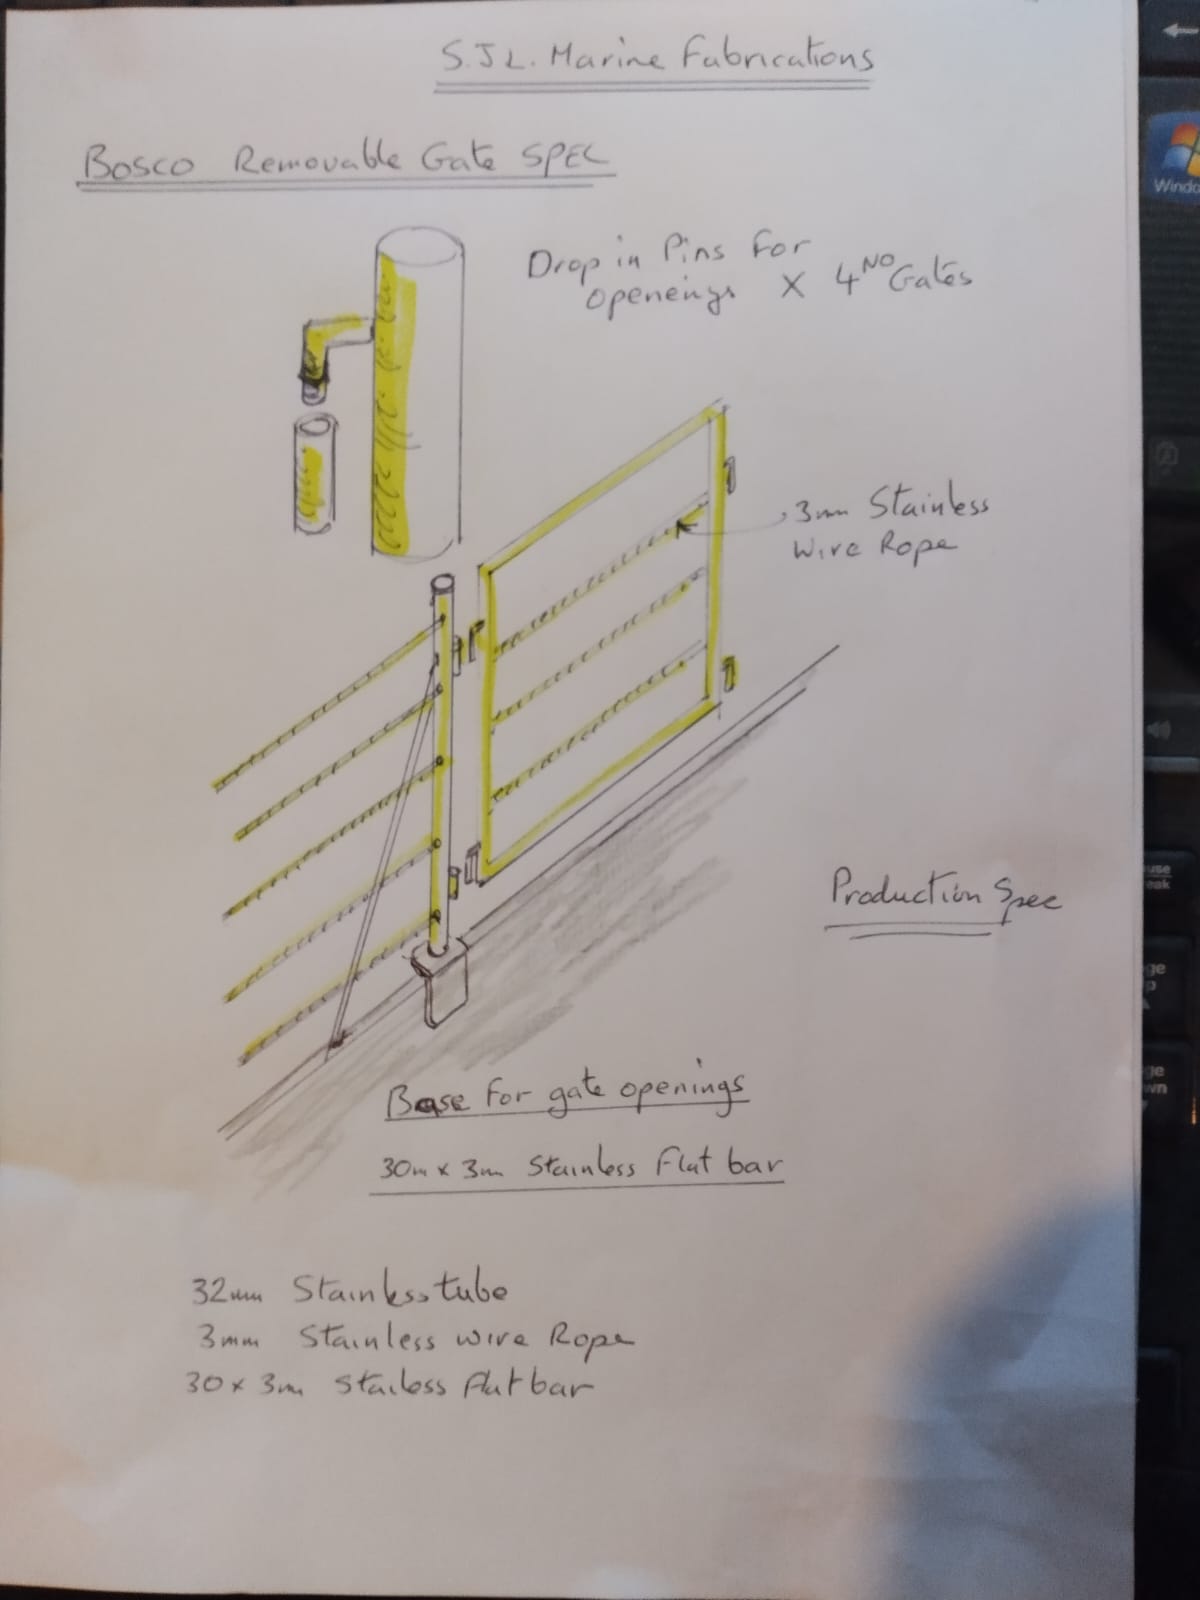 S.J.L. Marine Fabrications
Bosco Removable Gate SPEC
Drop in Pins For
openeings x 4 NO Gates
3mm Stainless
Wire Rope
Production Spec
Base For gate openings
30m x 3m Stainless Flat bar
32mm Stainless tube
3mm Stainless wire Rope
30 x 3m Stailess flat bar
Windo